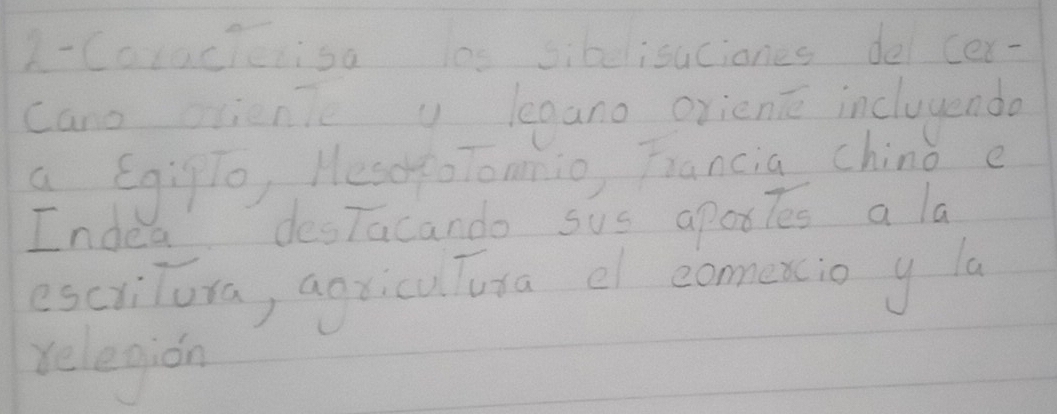 2-Caracterisa los sibelisaciones del cer-
cano oriente y legano oriente incluyendo
a Egipto, Mesopotamio, Francia chino e
Indea destacando sus aportes a la
escritura, agricultura el comercio y la
relegión